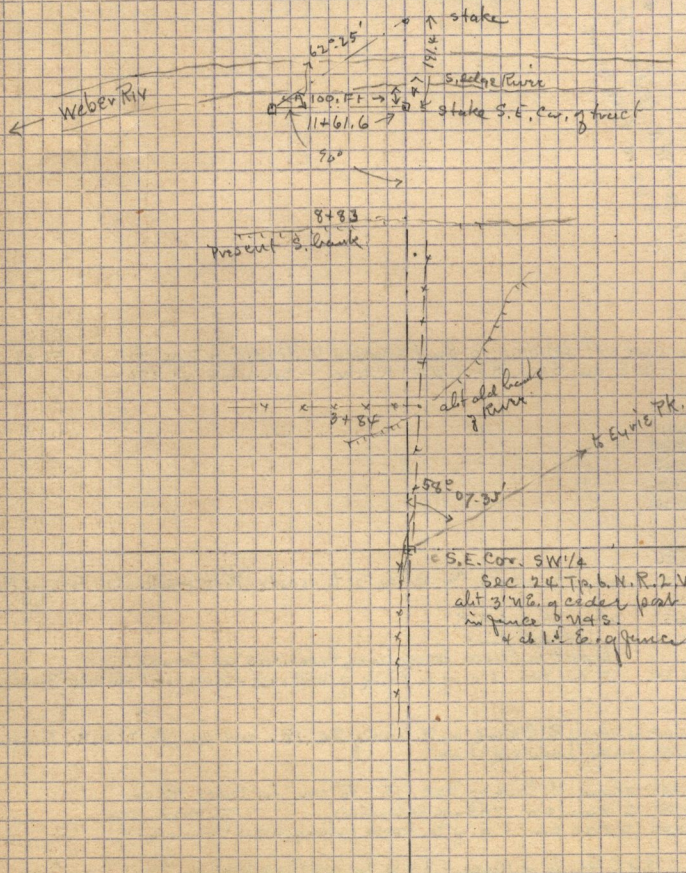 stake
62°-25'
191.4
S. edge River
Weber Riv
100. Ft
stake S.E. Cor. of tract
11+61.6
90°
8+83
Present S. bank
abt old bank
of River
3+84
to Eyrie Pk.
58° 07.35'
S.E. Cor. SW 1/4
Sec. 24 Tp. 6. N. R. 2. W
abt 3' N E. of ceder post
in fence N & S.
E. of fence